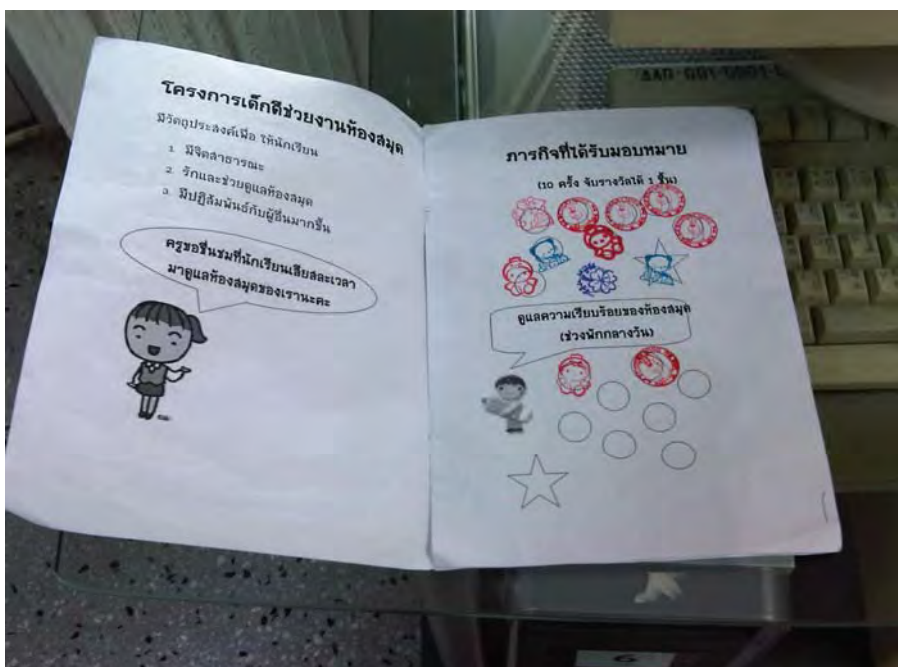 โครงการเด็กดีช่วยงานห้องสมุด
มีวัตถุประสงค์เพื่อ ให้นักเรียน
1. มีจิตสาธารณะ
2. รักและช่วยดูแลห้องสมุด
3. มีปฏิสัมพันธ์กับผู้อื่นมากขึ้น
ครูขอชื่นชมที่นักเรียนเสียสละเวลา
มาดูแลห้องสมุดของเรานะคะ
ภารกิจที่ได้รับมอบหมาย
(10 ครั้ง จับรางวัลได้ 1 ชิ้น)
ดูแลความเรียบร้อยของห้องสมุด
(ช่วงพักกลางวัน)
6